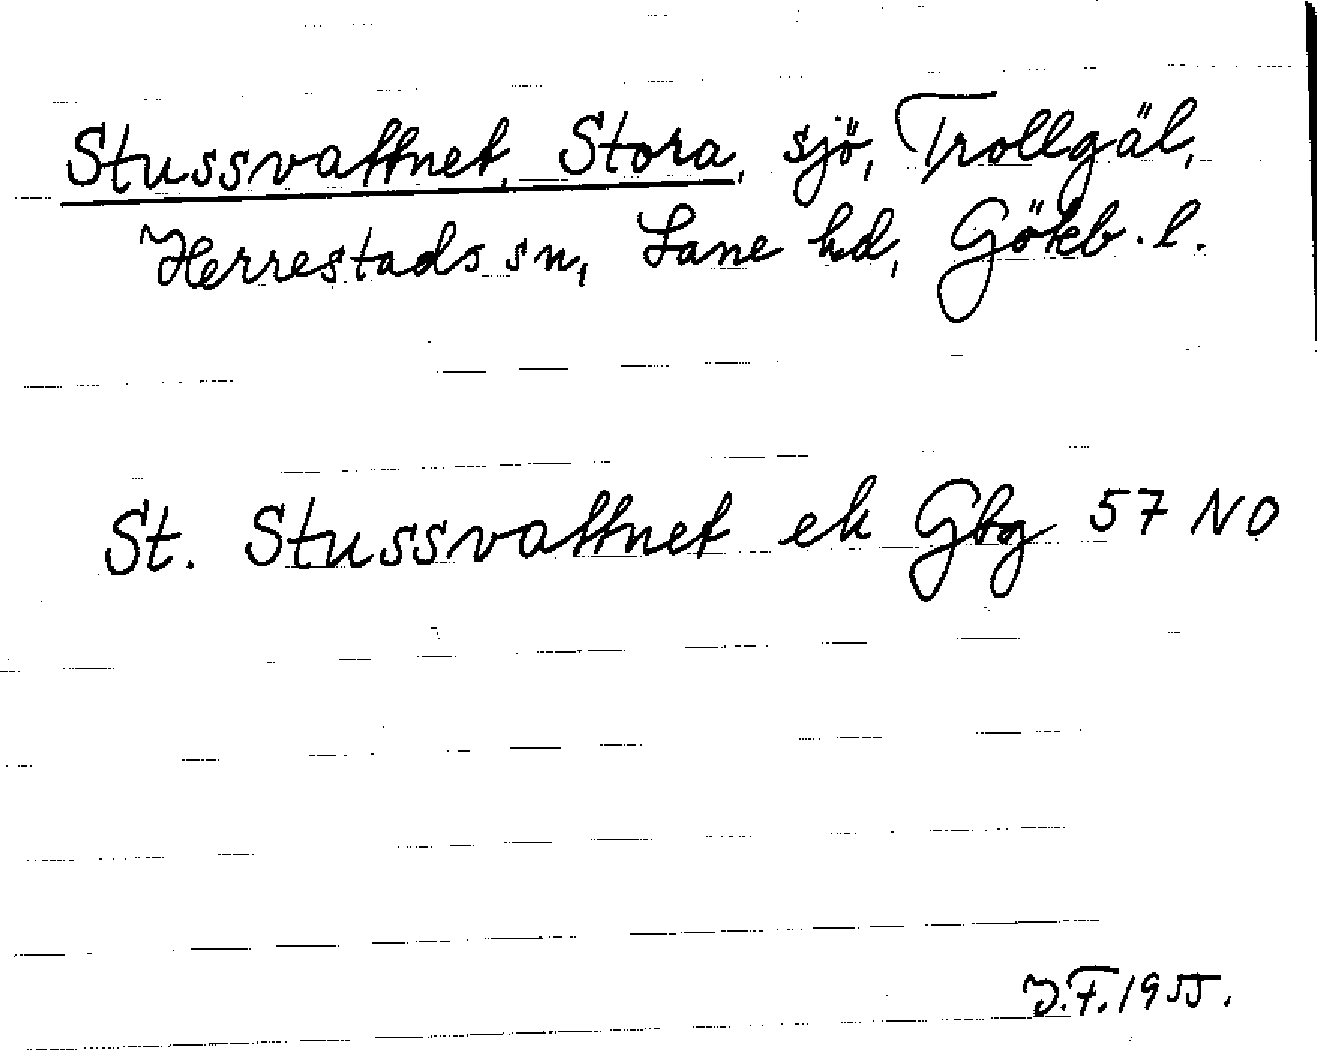 Stussvattnet, Stora, sjö, Trollgäl,
Herrestads sn, Lane hd, Göteb. l.
St. Stussvattnet ek Gbg 57 NO
J.F. 1955.